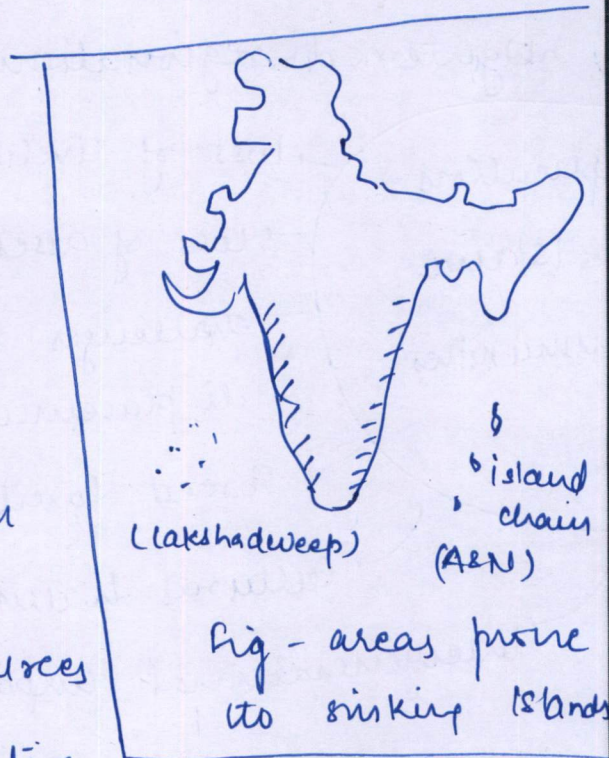 (lakshadweep)
island
chain
(A&N)
Fig - areas prone
to sinking Islands
urces